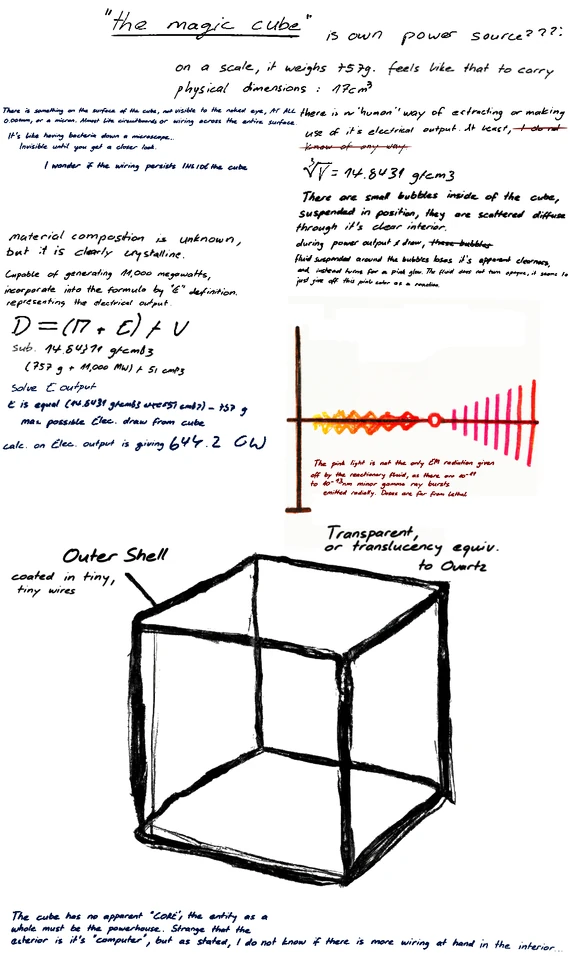 "the magic cube" is own power source???:
on a scale, it weighs 757g. feels like that to carry
physical dimensions : 17cm³
There is something on the surface of the cube, not visible to the naked eye, AT ALL
0.001mm, or a micron. Almost like circuitboards or wiring across the entire surface.
It's like having bacteria down a microscope..
Invisible until you get a closer look.
I wonder if the wiring persists INSIDE the cube
there is no "human" way of extracting or making
use of it's electrical output. At least, I do not
know of any way
∛V = 14.8431 g/cm3
There are small bubbles inside of the cube,
suspended in position, they are scattered diffuse
through it's clear interior.
during power output & draw, these bubbles
fluid suspended around the bubbles loses it's apparent clearness,
and instead turns for a pink glow. The fluid does not turn opaque, it seems to
just give off this pink color as a reaction.
material compostion is unknown,
but it is clearly crystalline.
Capable of generating 11,000 megawatts,
incorporate into the formula by "E" definition.
representing the electrical output.
D = (M + E) / V
sub. 14.84311 g/cm3
(757 g + 11,000 MW) ÷ 51 cm3
Solve E output
E is equal (14.8431 g/cm3 51 cm3) - 757 g
max possible Elec. draw from cube
calc. on Elec. output is giving 644.2 GW
The pink light is not the only EM radiation given
off by the reactionary fluid, as there are 10⁻¹¹
to 10⁻¹³nm minor gamma ray bursts
emitted radially. Doses are far from lethal
Transparent,
or translucency equiv.
to Quartz
Outer Shell
coated in tiny,
tiny wires
The cube has no apparent "CORE", the entity as a
whole must be the powerhouse. Strange that the
exterior is it's "computer", but as stated, I do not know if there is more wiring at hand in the interior...